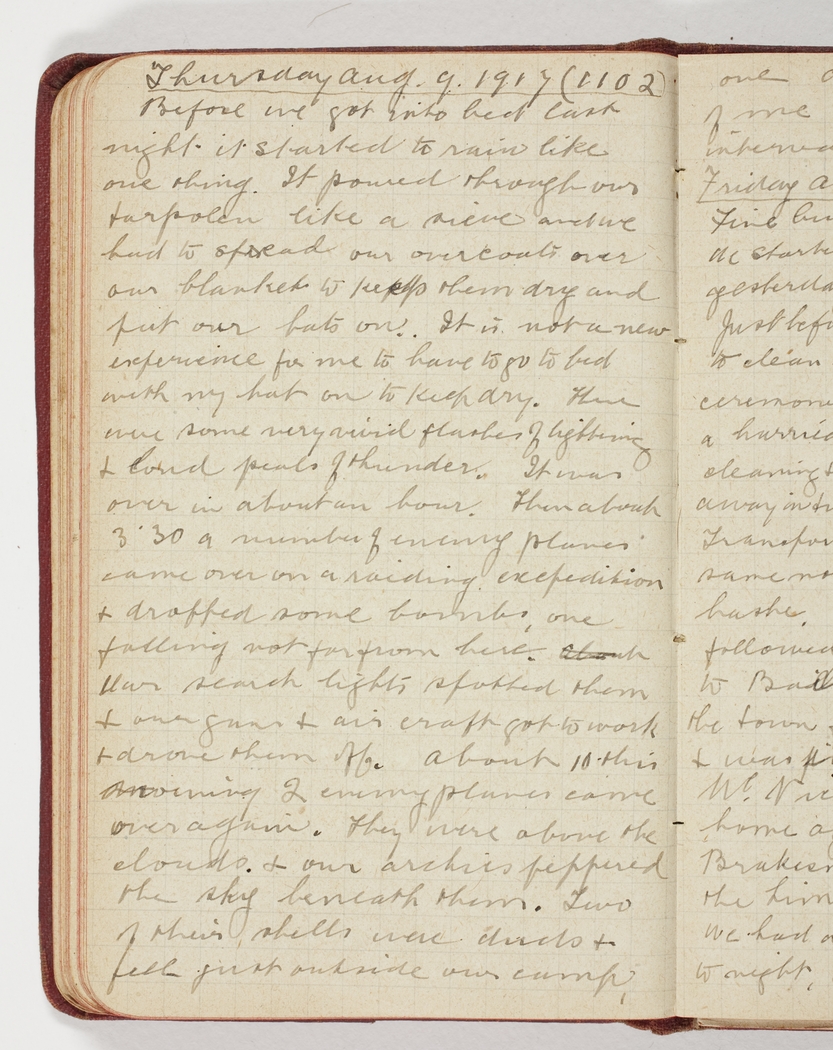 Thursday Aug. 9. 1917 (1102)
Before we got into bed last
night it started to rain like
one thing. It poured through our
tarpolen like a sieve and we
had to spread our overcoats over
our blankets to keep them dry and
put our hats on. It is not a new
experience for me to have to go to bed
with my hat on to keep dry. There
were some very vivid flashes of lightning
& loud peals of thunder. It was
over in about an hour. Then about
3.30 a number of enemy planes
came over on a raiding excepedition
& dropped some bombs, one
falling not far from here. about
Our search lights spotted them
& our guns & air craft got to work
& drove them off. About 10 this
morning 2 enemy planes came
over again. They were above the
clouds. & our archies peppered
the sky beneath them. Two
of their shells were duds &
fell just outside our camp,
one
of me
Friday A
Fine bu
yesterda
Just befo
to clean
ceremoni
a hurrie
cleaning &
away in
Transpor
same no
followed
to
the town
& was
home ag
the
we had
to night,